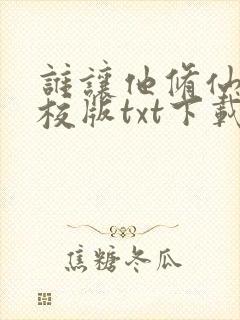 誰讓他脩仙
校版txt下載
焦糖冬瓜